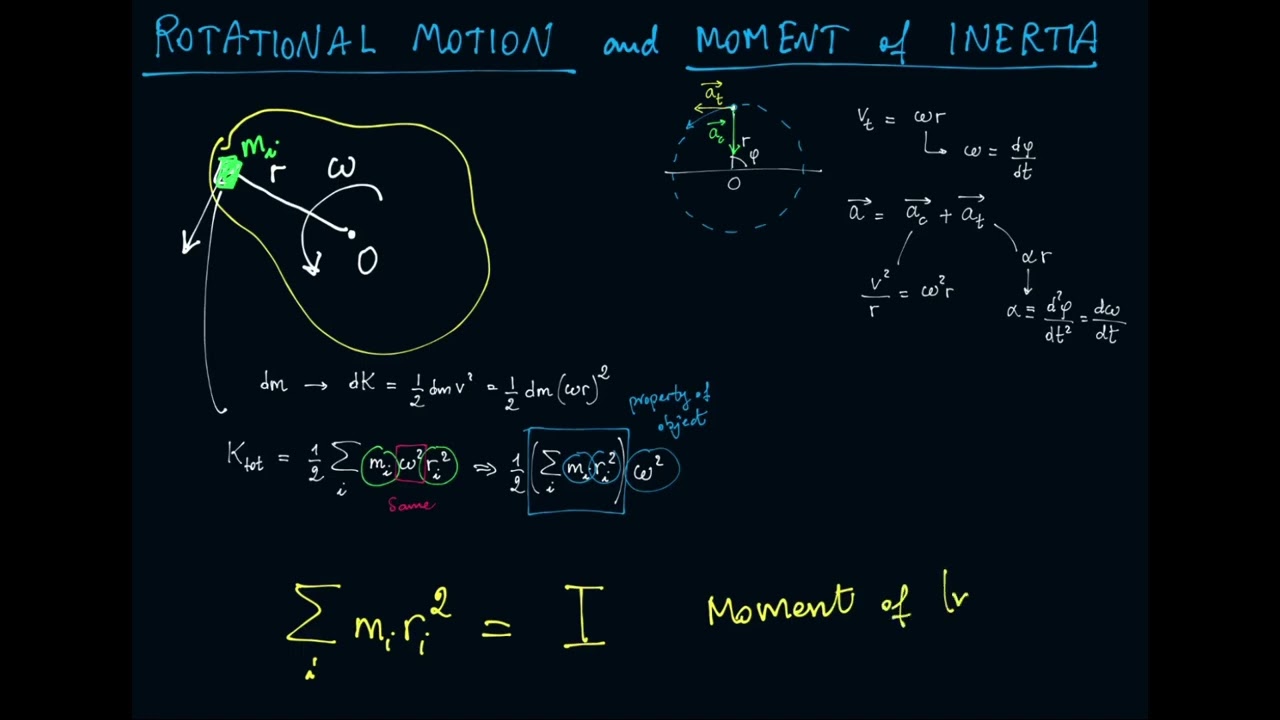 ROTATIONAL MOTION and MOMENT of INERTIA
mᵢ
r
ω
O
a⃗ₜ
a⃗_c
r
φ
O
vₜ = ωr
ω = dφ/dt
a⃗ = a⃗_c + a⃗ₜ
αr
v²/r = ω²r
α ≡ d²φ/dt² = dω/dt
dm → dK = 1/2 dmv² = 1/2 dm(ωr)²
property of
object
K_tot = 1/2 ∑ᵢ mᵢ ω² rᵢ² ⇒ 1/2 (∑ᵢ mᵢ rᵢ²) ω²
Same
∑ᵢ mᵢ rᵢ² = I Moment of